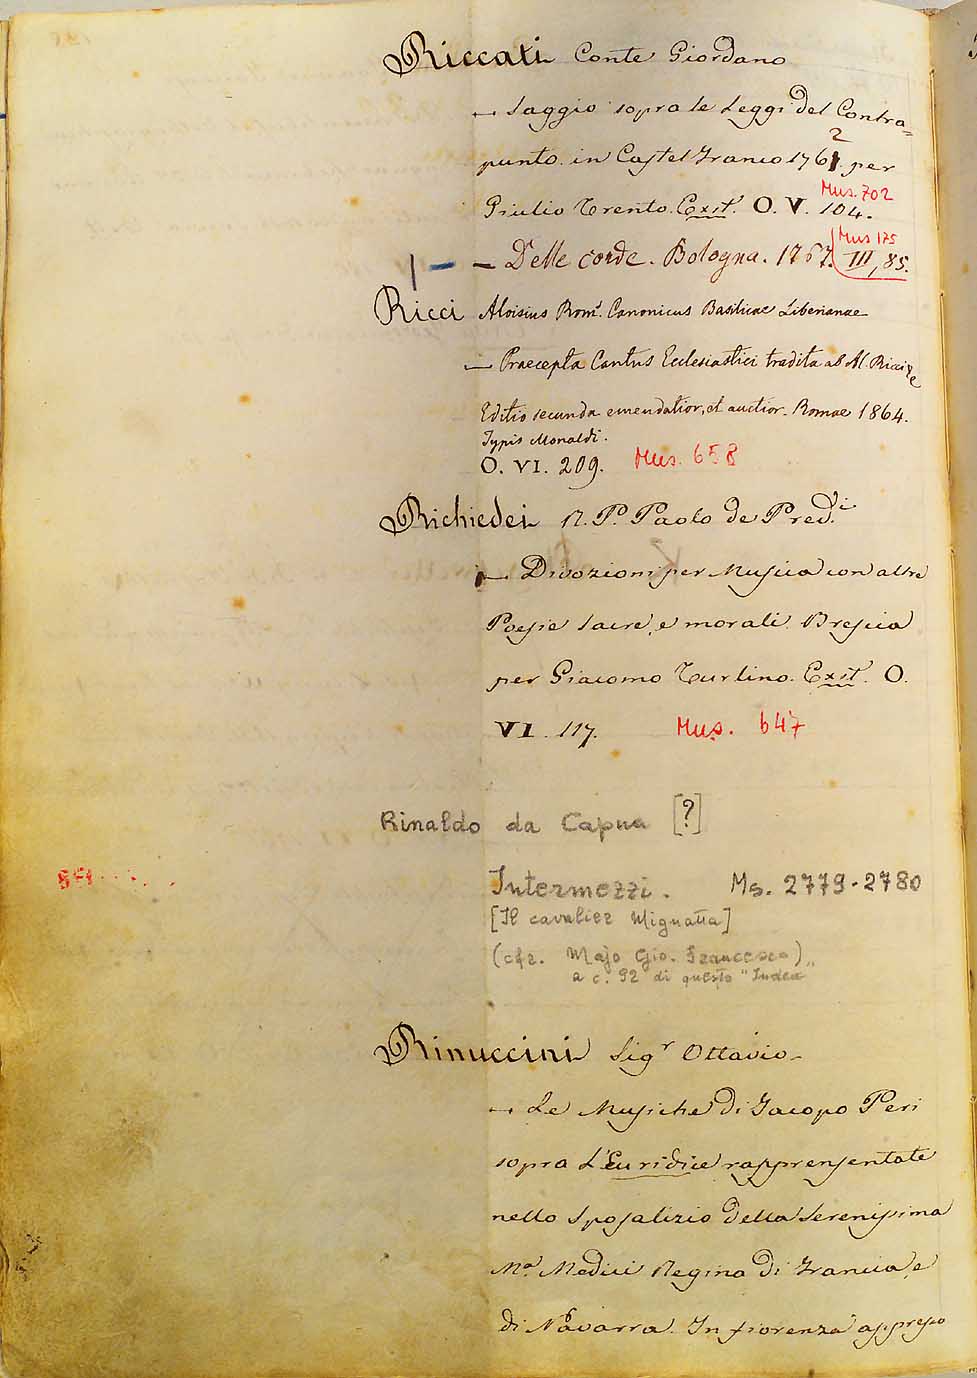 Riccati Conte Giordano
— Saggio sopra le Leggi del Contra=
2
punto. in Castel Franco 1761. per
Mus. 702
Giulio Trento. Exit. O. V. 104.
Mus 175
1 — — Delle corde. Bologna. 1767. III, 85.
Ricci Aloisius Rom. Canonicus Basilicae Liberianae
— Praecepta Cantus Ecclesiastici tradita ab Al. Ricci
Editio secunda emendatior, et auctior. Romae 1864.
Typis Monaldi.
O. VI. 209. Mus. 658
Richiedei R. P. Paolo de Pred.i
— Divozioni per Musica con altre
Poesie Sacre, e morali. Brescia
per Giacomo Turlino. Exit. O.
VI. 117. Mus. 647
Rinaldo da Capua [?]
Intermezzi. Ms. 2779-2780
[Il cavalier Mignatta]
(cfr. Majo Gio. Francesco)
a c. 92 di questo "Index"
Rinuccini Sigr Ottavio
— Le Musiche di Jacopo Peri
sopra L'Euridice rappresentate
nello Sposalizio della Serenissima
Ma. Medici Regina di Francia, e
di Navarra. In fiorenza appresso